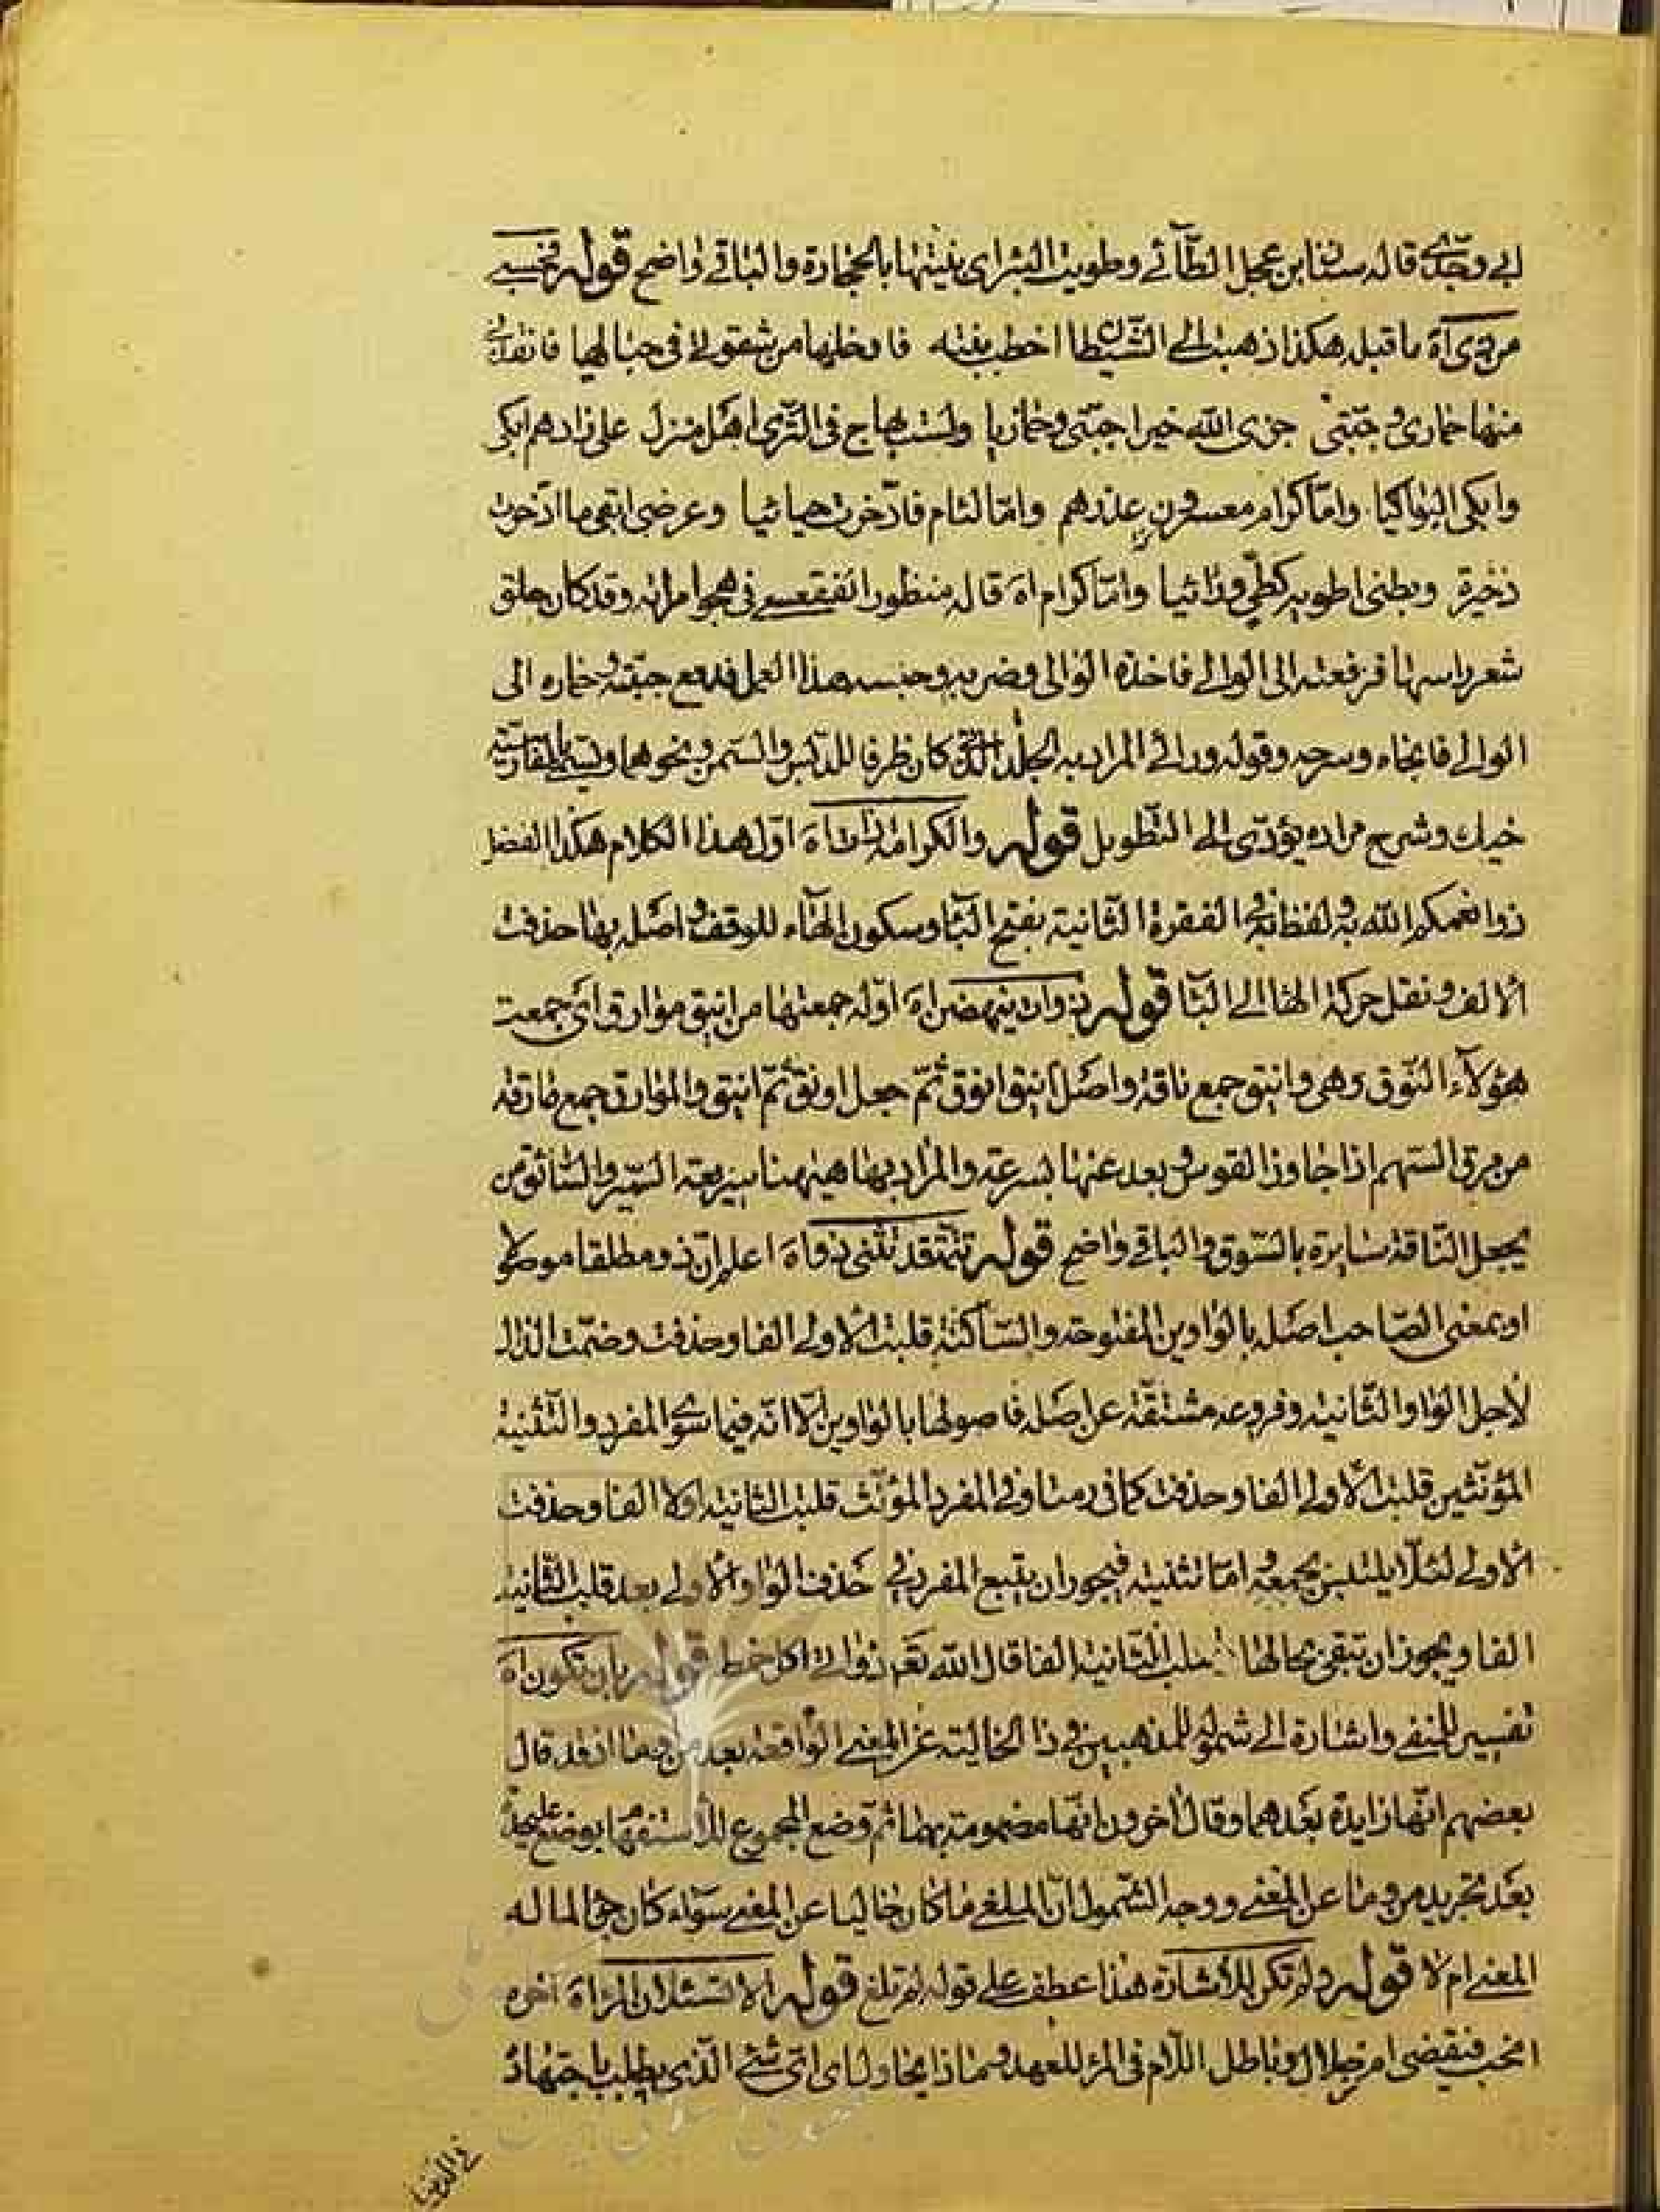 ابي وجدي قاله سنان ابن عجل الطآئي وطويت البئر اى بنيتها بالحجارة والباقي واضح قوله فحسبي
من ذى آه ما قبله هكذا ذهبت الى الشيطان اخطب بنته فادخلها من شقوتي في حباليا فانقذني
منها حماري وجبتي جزى الله خيرا جبتي وحماريا ولست بهاج في القرى اهل منزل على زادهم ابكي
وابكي البواكيا واما كرام معسرون عذرتهم واما لئام فادخرت حيائيا وعرضي ابقى ما ادخرت
ذخيرة وبطني اطويه كطي ردائيا واما كرام اه قاله منظور الفقعسي في هجو امرأته وقد كان حلق
شعر رأسها فرفعته الى الوالي فاخذه الوالي وضربه وحبسه هذا العمل فدفع جبته وحماره الى
الوالي فانجاه وسرحه وقوله ورائي المراد به الجلد الذي كان ظرفا للدبس والسمن ونحوهما ويسمى بالفارسية
خيك وشرح مراده يؤدى الى التطويل قوله والكرامة ذات اه اول هذا الكلام هكذا بالفضل
ذو فضلكم الله به ولفظة به في الفقرة الثانية بفتح البآ وسكون الهآء للوقف واصله بها حذفت
الالف ونقل حركة الها الى البآ قوله ذوات ينهضن اه اوله جمعتها من اينق موارق اى جمعت
هؤلآء النوق وهي واينق جمع ناقة واصل اينق انوق ثم جعل اونق ثم اينق والموارق جمع مارقة
من مرق السهم اذا جاوز القوس وبعد عنها بسرعة والمراد بها هيهنا سريعة السير والسائق من
يجعل الناقة سايرة بالسوق والباقي واضح قوله تتمة قد تثنى ذو اه اعلم ان ذو مطلقا موصولا
او بمعنى الصاحب اصله بالواوين المفتوحة والساكنة قلبت الاولى الفا وحذفت وضمت الذال
لاجل الواو الثانية وفروعه مشتقة عن اصله فاصولها بالواوين الا انه فيما سوى المفرد والتثنية
المؤنثين قلبت الاولى الفا وحذفت كما في رمتا وفي المفرد المؤنث قلبت الثانية اولا الفا وحذفت
الاولى لئلا يلتبس بجمعه اما تثنيته فيجوز ان يتبع المفرد في حذف الواو الاولى بعد قلب الثانية
الفا ويجوز ان تبقى بحالها قلبت الثانية الفا قال الله تعم ذواتى اكل خمط قوله بان تكون اه
تفسير للنفي واشارة الى شموله للمذهبين في ذا الخالية عن المعنى الواقعة بعد من وما اذ قد قال
بعضهم انها زايدة بعدهما وقال آخرون انها مضمومة بهما ثم وضع المجموع للاستفهام بوضع عليحدة
بعد تجريد من وما عن المعنى ووجه الشمول ان الملغى ما كان خاليا عن المعنى سوآء كان جزء لما له
المعنى ام لا قوله ولم تكن للاشارة هذا عطف على قوله لم تلغ قوله الا تسئلان المرء اه آخره
انحب فيقضى ام ضلال وباطل اللام في المرء للعهد وماذا يحاول اى اى شئ الذي يطلب باجتهاد
في الدنيا